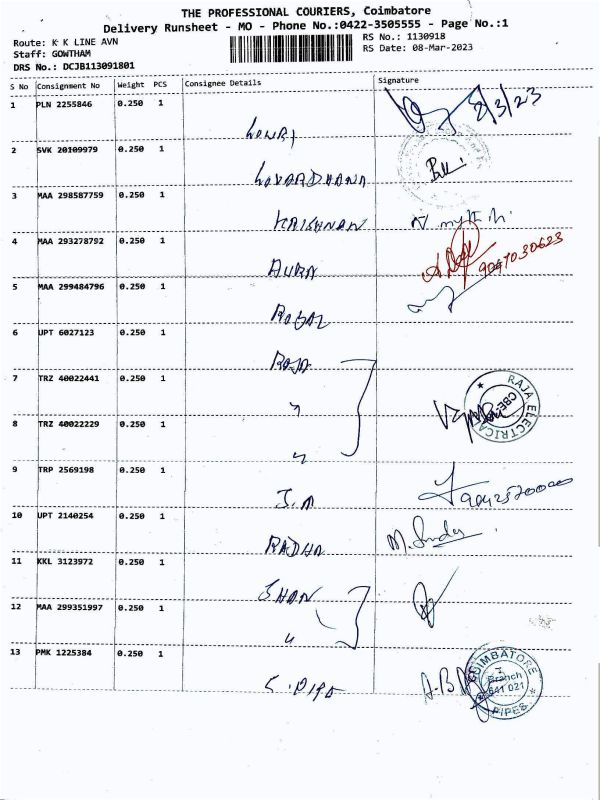 THE PROFESSIONAL COURIERS, Coimbatore
Delivery Runsheet - MO - Phone No.:0422-3505555 - Page No.:1
Route: K K LINE AVN
RS No.: 1130918
Staff: GOWTHAM
RS Date: 08-Mar-2023
DRS No.: DCJB113091801
S No Consignment No Weight PCS Consignee Details Signature
1 PLN 2255846 0.250 1 8/3/23
2 SVK 20109979 0.250 1
3 MAA 298587759 0.250 1 KRISHNAN
4 MAA 293278792 0.250 1 AURA 9047030623
5 MAA 299484796 0.250 1 ROYAL
6 UPT 6027123 0.250 1 RAJA
7 TRZ 40022441 0.250 1 "
RAJA ELECTRICALS CBE
8 TRZ 40022229 0.250 1 "
9 TRP 2569198 0.250 1 J.M
10 UPT 2140254 0.250 1 RADHA
11 KKL 3123972 0.250 1 SHAN
12 MAA 299351997 0.250 1 "
13 PMK 1225384 0.250 1
COIMBATORE
Branch
641 021
PIPES